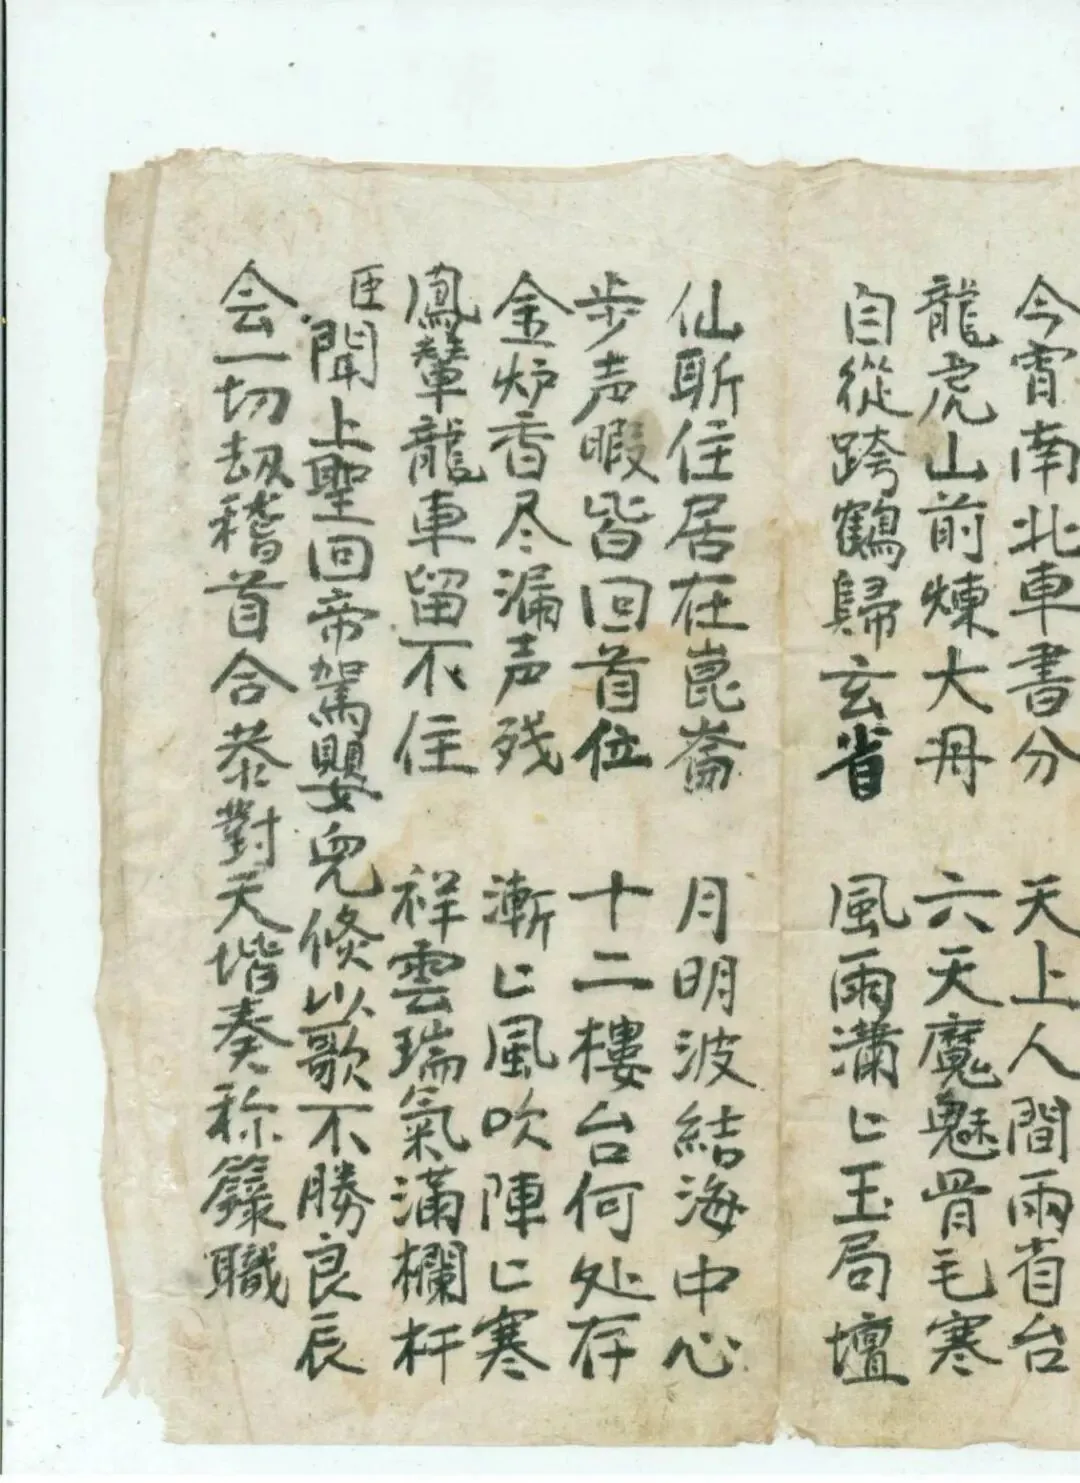 今宵南北車書分　天上人間兩省台
龍虎山前煉大丹　六天魔魅骨毛寒
自從跨鶴歸玄省　風雨瀟〻玉局壇
仙斫住居在崑崙　月明波結海中心
步声暇皆回首位　十二樓台何处存
金炉香尽漏声残　漸〻風吹陣〻寒
鳳輦龍車留不住　祥雲瑞氣滿欄杆
臣聞上聖回帝駕嬰兒倐以歌不勝良辰
会一切刼稽首合恭對天堦奏称籙職